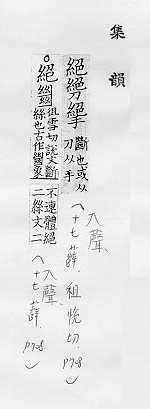 集韻
絕
斷也或从
刀从手
入聲
(十七薛. 租悅切. P708)
絕𢇍
徂雪切說文斷
絲也古作𢇍象
不連體絕
二絲文二
入聲
(十七薛. P708)